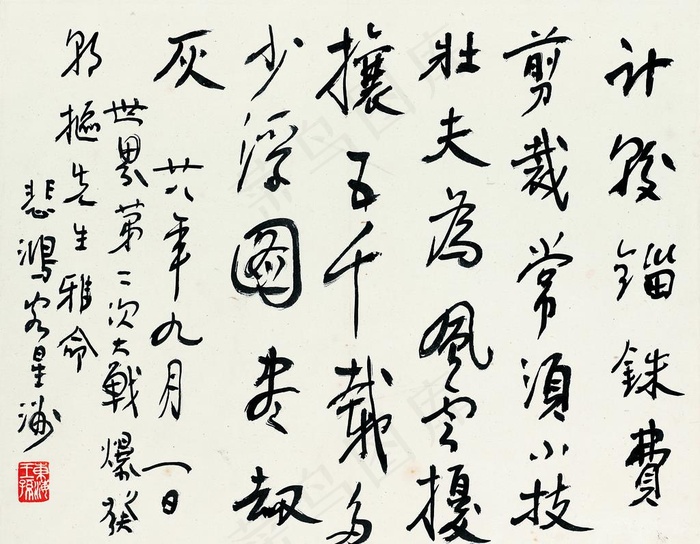 計較錙銖費
剪裁常須小技
壯夫為風雲擾
攘五千載多
少浮圖盡劫
灰
廿八年九月一日
世界第二次大戰爆發
樞先生雅命
悲鴻客星洲
東海王孫